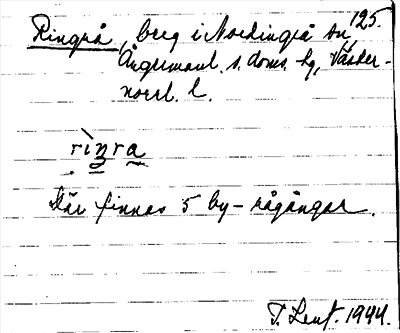 125.
Ringrå, berg i Nordingrå sn,
Ångermanl. s. doms. hg, Väster-
norrl. l.
rìnra
Där finnas 5 by-rågångar.
T. Lenf. 1944.